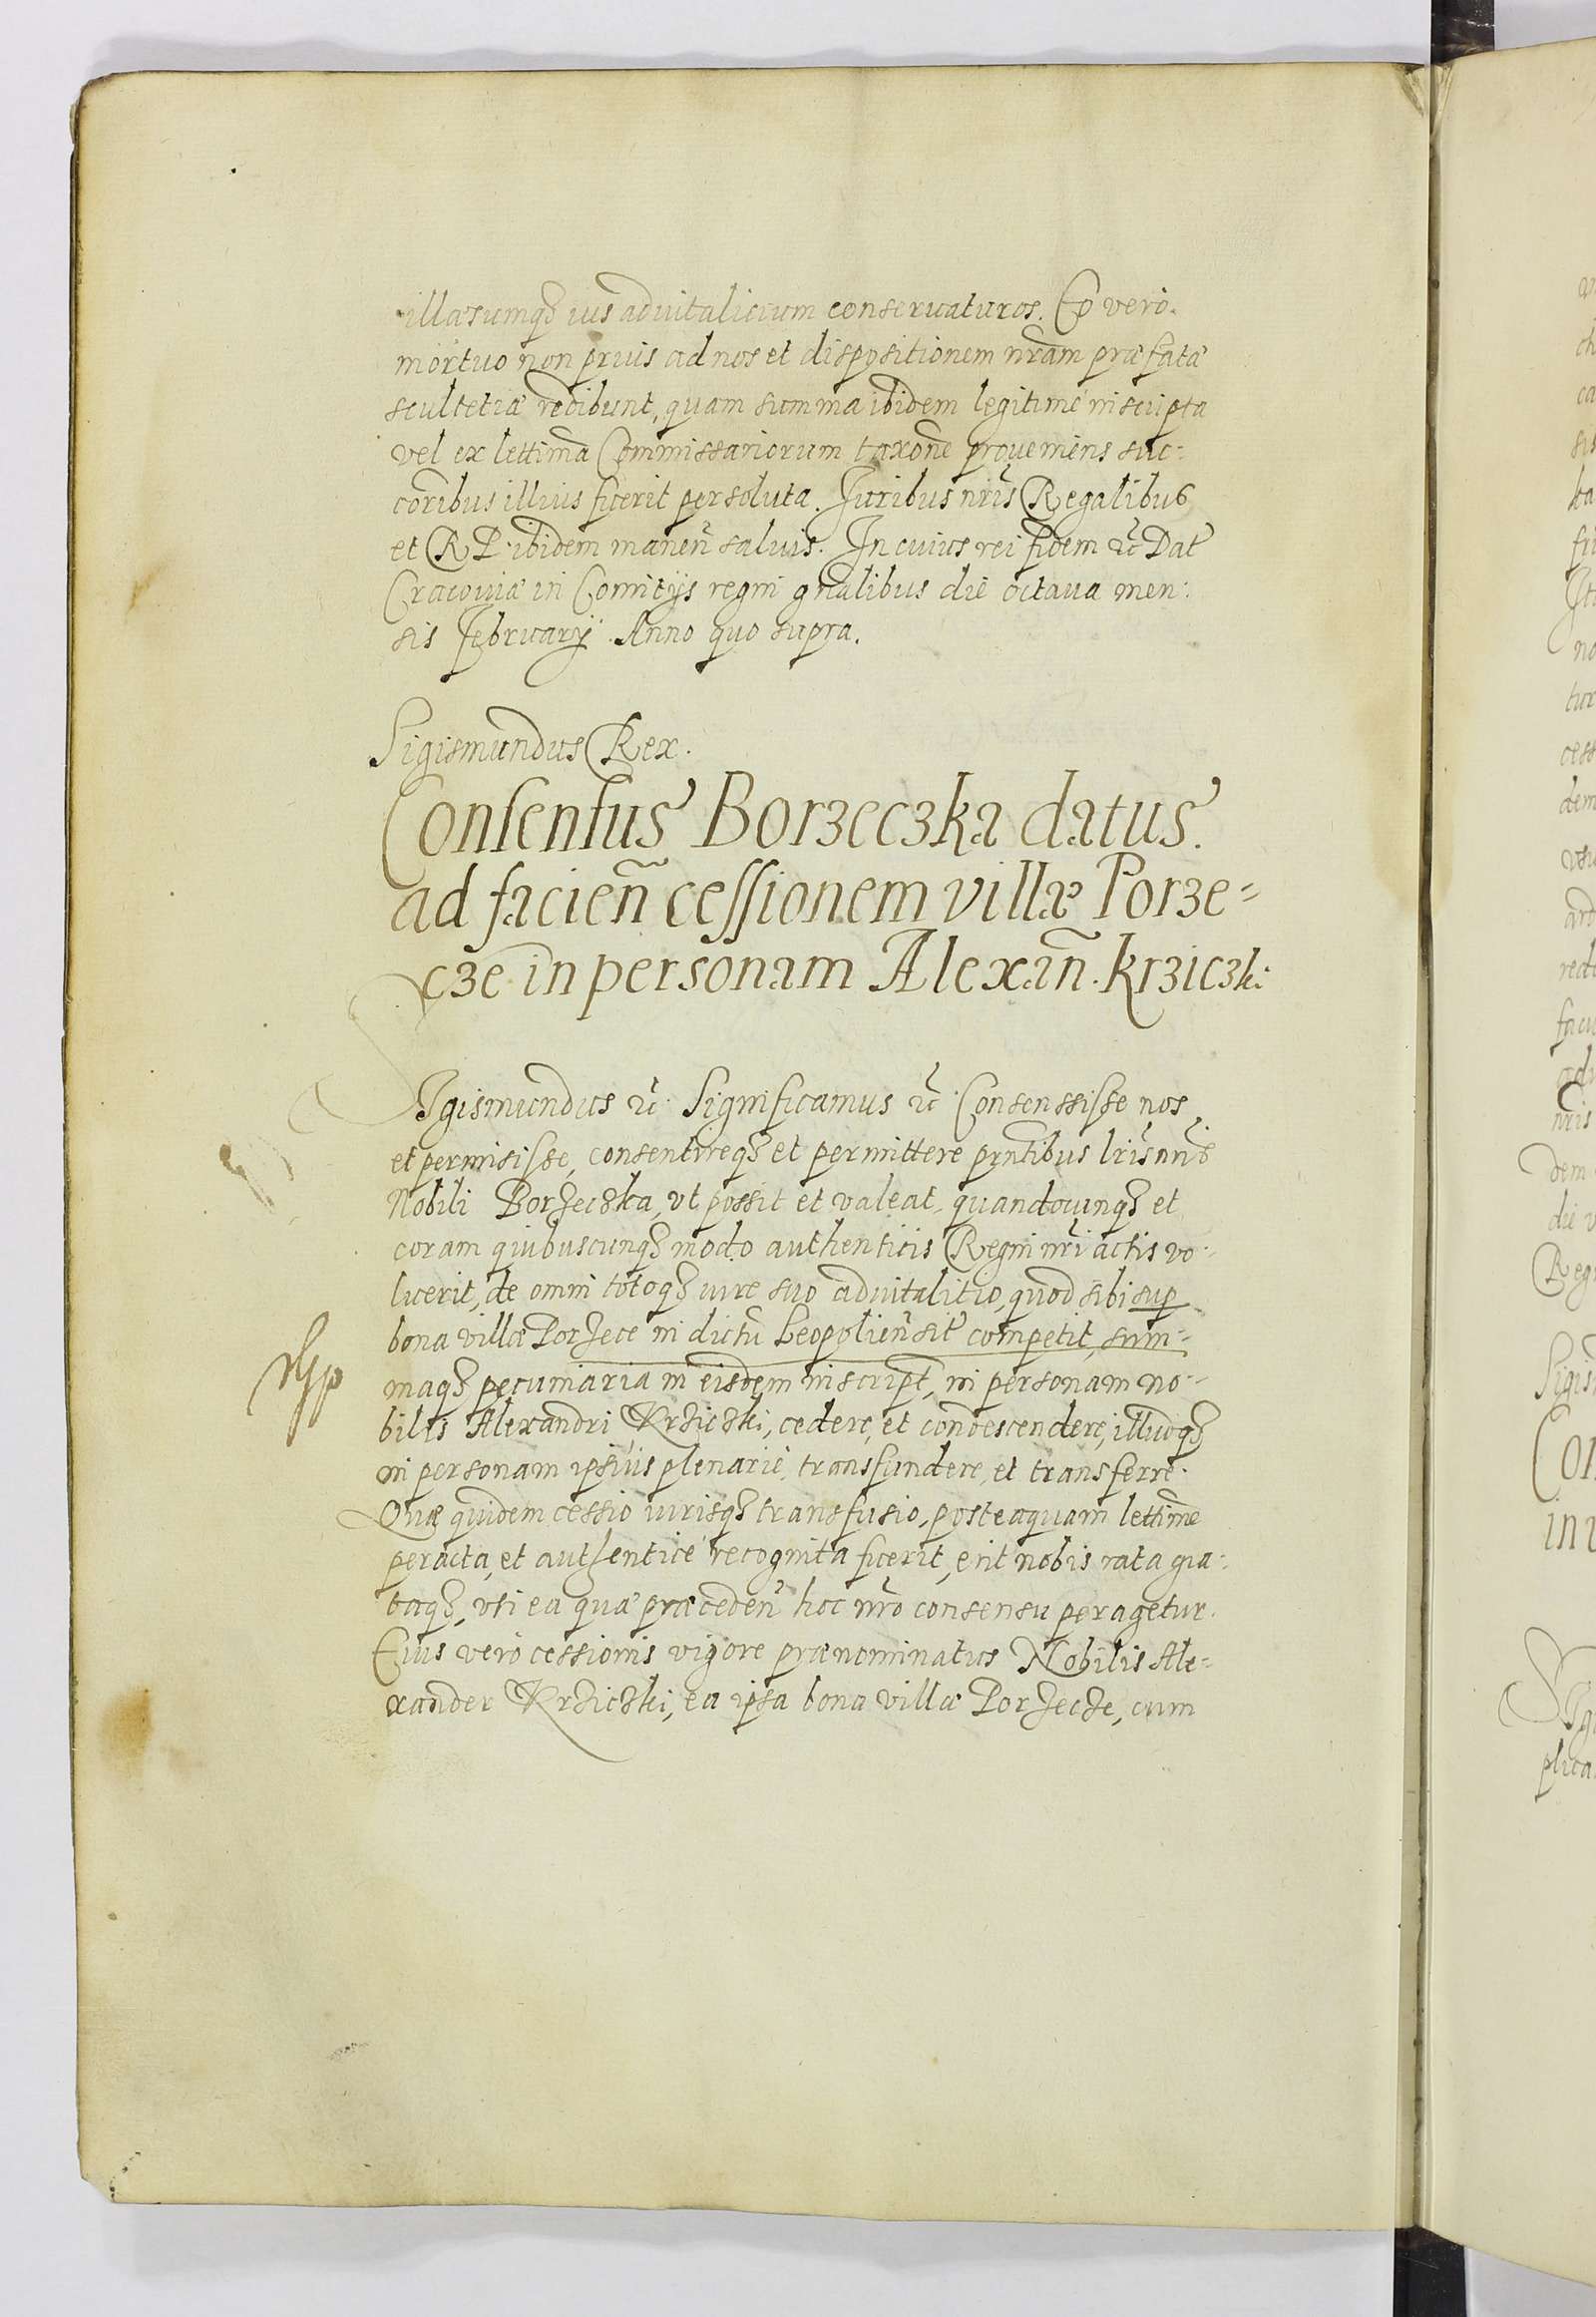 illæsumq₃ ius aduitalicium conseruaturos. Eo vero
mortuo non prius ad nos et dispositionem nr̃am præfatæ
scultetiæ redibunt, quam summa ibidem legitime inscripta
vel ex lettima Commissariorum taxone proueniens suc-
coribus illius fuerit persoluta. Iuribus nr̃is Regalibus
et RP. ibidem manen̄ saluis. In cuius rei fidem &c̃ Dat
Cracouiæ in Comitijs regni gnalibus die octaua men:
sis February Anno quo supra.
Sigismundus Rex.
Consensus Borzeczka datus
ad facien̄ cessionem villæ Porze-
cze in personam Alexan̄. krziczk:
Sigismundus &c̃ Significamus &c̃ Consenssisse nos
et permisisse, consentireq₃ et permittere pr̃ntibus lr̃is nr̃is
Nobili Borzeczka, vt possit et valeat quandocunq₃ et
coram quibuscunq₃ modo authenticis Regni nr̃i actis vo-
luerit, de omni totoq₃ iure suo aduitalitio, quod sibi sup
bona villæ Porzece in dictu Leopolien̄ sit competit, sum-
maq₃ pecuniaria in eisdem inscript, in personam no-
bilis Alexandri Krziczki, cedere, et condescendere, illudq₃
in personam ipsius plenarie, transfundere, et transferre.
Quæ quidem cessio iurisq₃ transfusio, posteaquam lettime
peracta, et authentice recognita fuerit, erit nobis rata gra-
taq₃, vti ea quæ præceden̄ hoc nr̃o consensu peragetur.
Cuius vero cessionis vigore prænominatus Nobilis Ale-
xander Krziczki, ea ipsa bona villæ Porzecze, cum